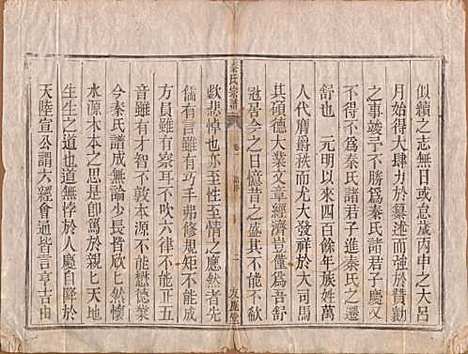 似續之志無日或怠歲丙申之大呂
月始得大肆力於纂述而詢於贊勷
之事竣予不勝爲秦氏諸君子慶又
不得不爲秦氏諸君子進秦氏之遷
舒也 元明以來四百餘年族姓萬
人而膺爵秩而尤大發祥於大司馬
其碩德大業文章經濟豈僅爲吾舒
冠居今之日憶昔之盛其不能不
秦氏宗譜 卷 二
欷悲悼也亦至性至情之應然者也
儒有言雖有巧手弗修規矩不能成
方員雖有察耳不吹六律不能正五
音雖有才智不敦天性不能懋德業
今秦氏譜成無論少長皆曉然於
水源木本之思而厚於親匕天地
生生之道也道無悖於人慶自降於
天陸宣公謂六經會通皆言亨吉由